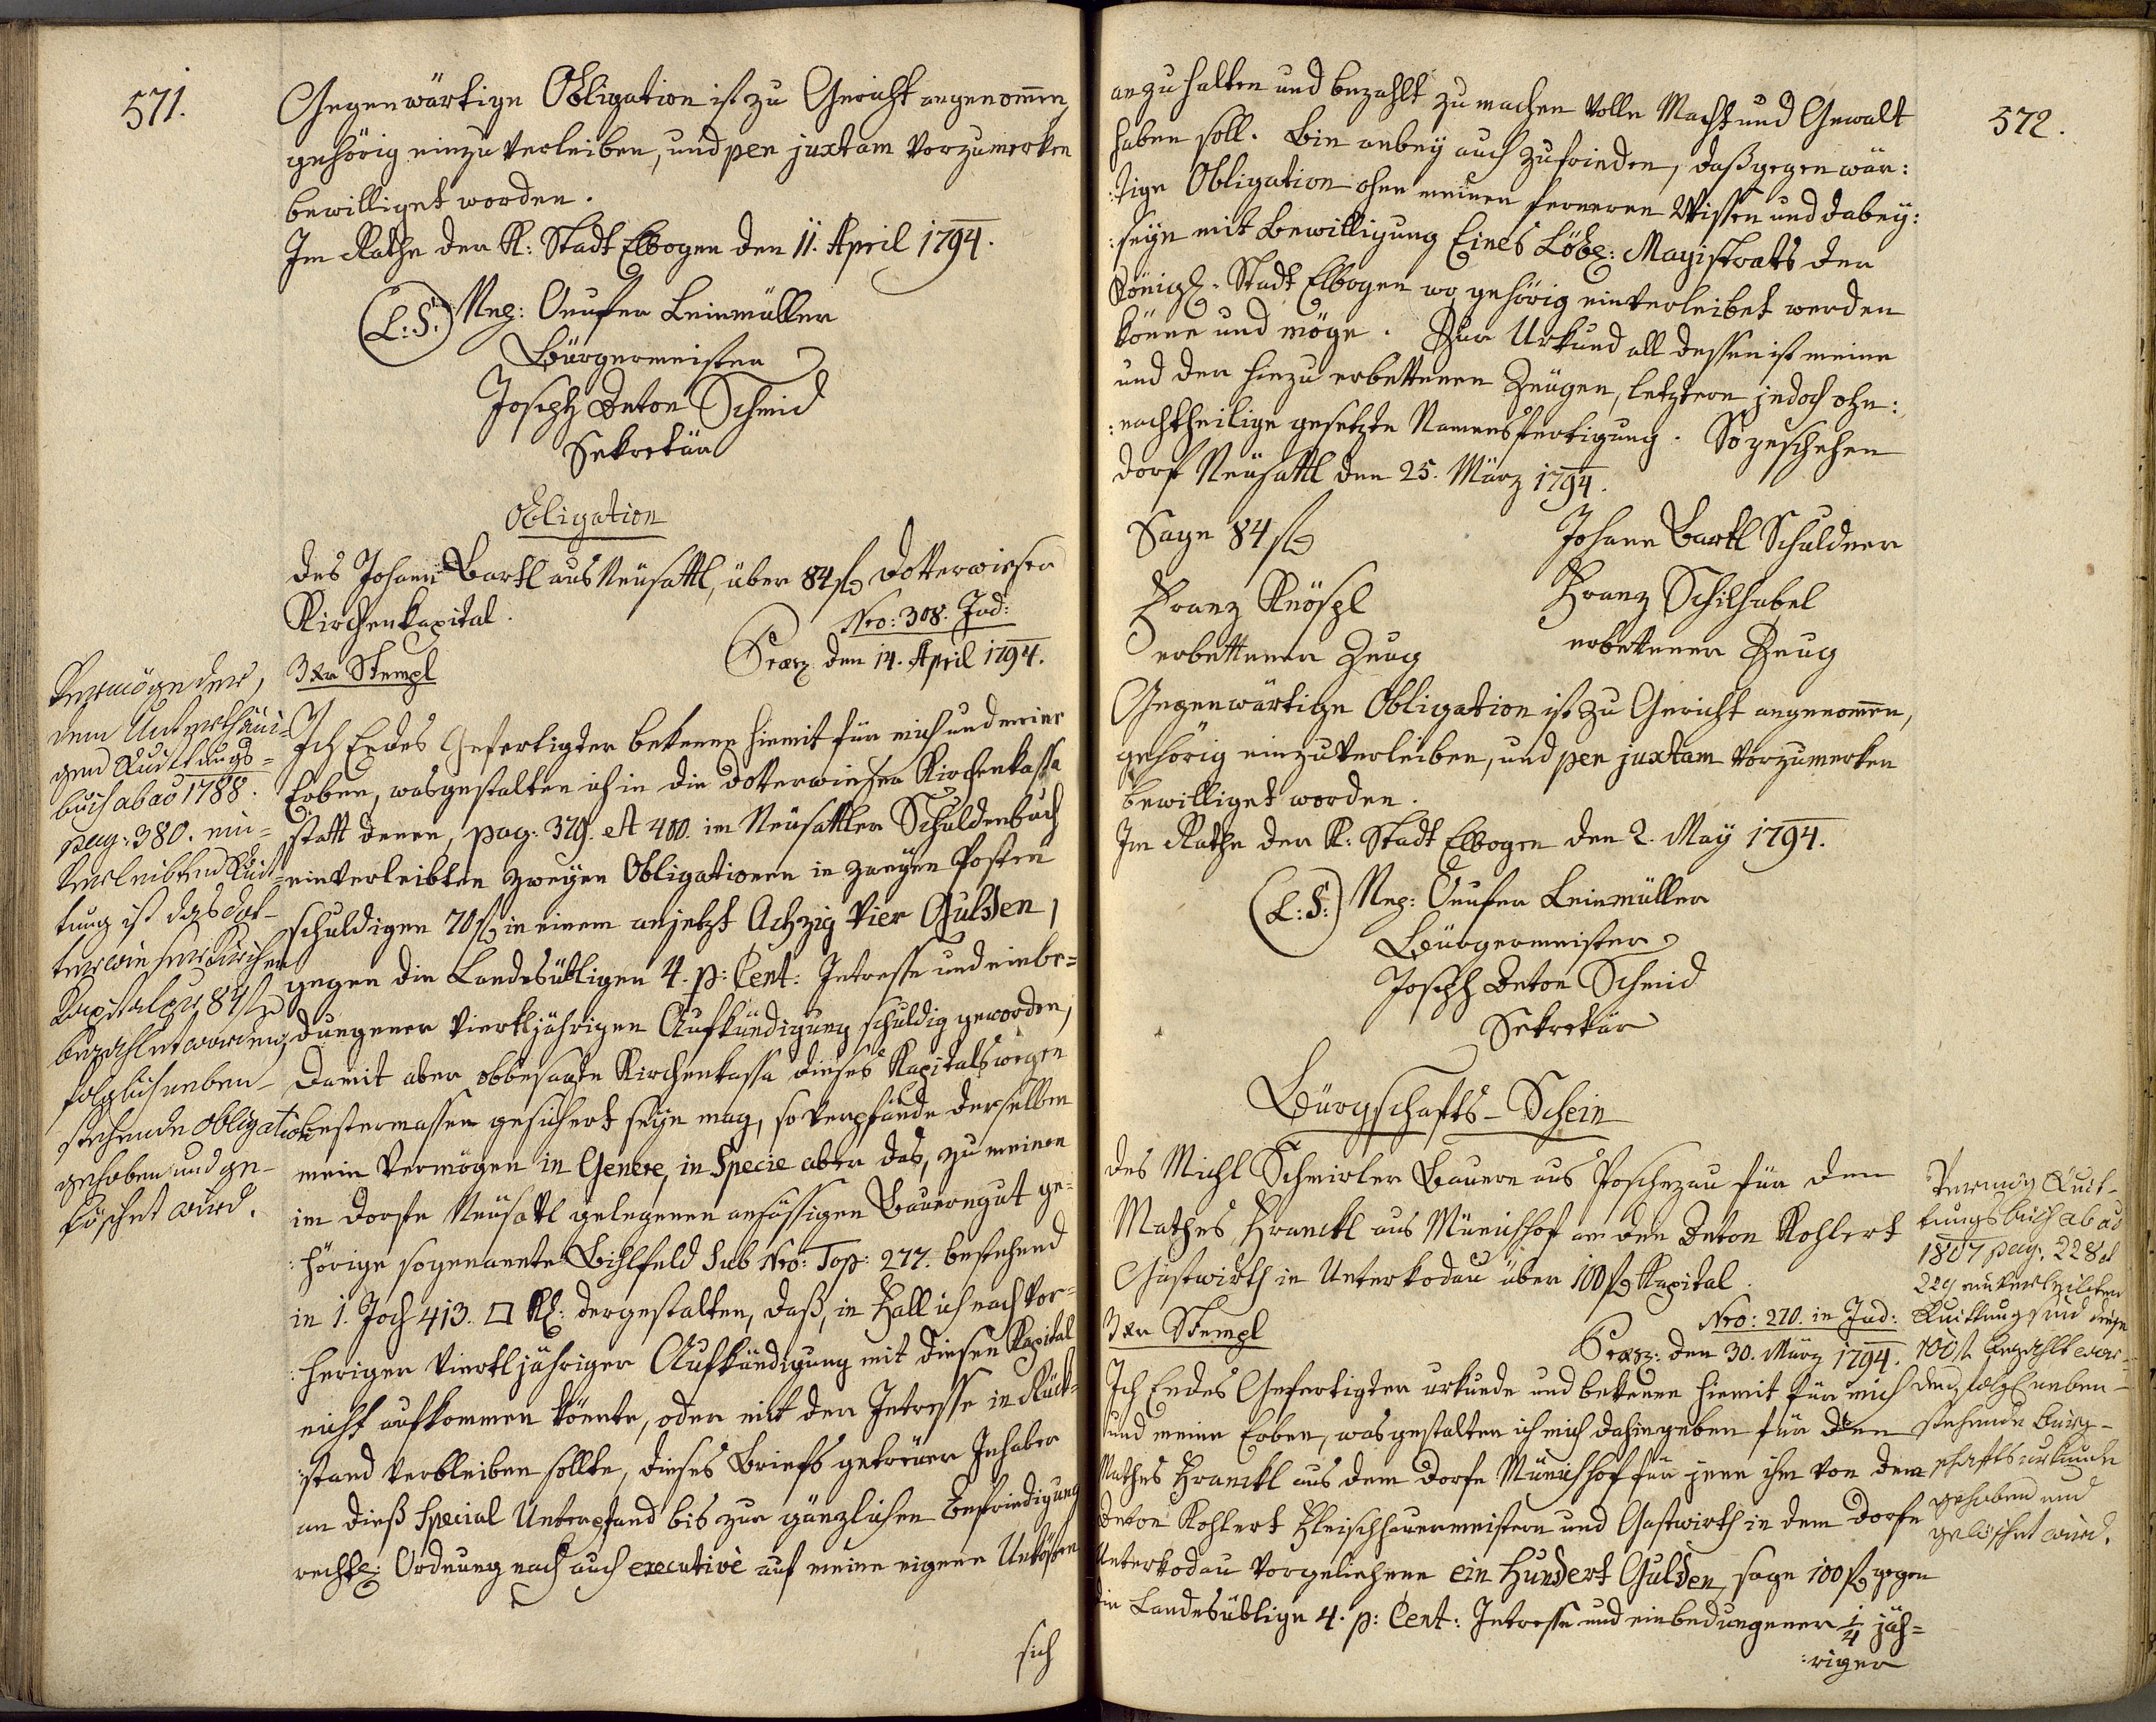 571.
Gegenwärtige Obligation ist zu Gericht angenom̄en,
gehörig einzuverleiben, und per juxtam vorzumerken
bewilliget worden.
Im Rathe der K: Stadt Elbogen den 11. April 1794.
(L:S:) Neg: Leinmüller
Bürgermeister
Joseph Anton Schmid
Sekretär
Obligation
des Johann Bartl aus Neüsattl, über 84 f Dotterwieser
Kirchenkapital.
Nro: 308. Jud:
3 Xr Stempl
Praes den 14. April 1794.
Ich Endes Gefertigter bekenne hiemit für mich und meine
Erben, wasgestalten ich in die Dotterwieser Kirchenkassa
statt denen, pag: 379. et 400. im Neüsattler Schuldenbuch
einverleibten zweyen Obligationen in zweyen Posten
schuldigen 70 f in einem anjetzt Achzig Vier Gulden,
gegen die Landesübligen 4. p: Cent: Intresse und einbe=
dungener viertljährigen Aufkündigung schuldig geworden,
Damit aber obbesagte Kirchenkassa dieses Kapitals wegen
bestermassen gesichert seye mag, so verpfände derselben
mein Vermögen in Genere, in Specie aber das, zu meinen
im Dorfe Neüsattl gelegenen ansässigen Bauerngut ge=
:hörige sogenannte Bihlfeld Sub Nro: Top: 277. bestehend
in 1. Joch 413. □ Kl: dergestalten, daß, in Fall ich nach vor=
:heriger viertljähriger Aufkündigung mit diesen Kapital
nicht aufkommen könnte, oder mit der Intresse in Rück=
:stand verbleiben sollte, dieses Briefs getreüer Inhaber
an dieß Special Unterpfand bis zur gänzlichen Befriedigung
rechtl: Ordnung nach auch executivè auf meine eigene Unkösten
sich
Vermög der,
dem Unterthäni=
gen Quittungs=
buch ab aō 1788.
pag: 380. ein=
verleibten Quit=
tung ist das Dot=
terwieser Kirchen
Kapital per 84 f
bezahlet worden,
folglich neben=
stehende Obligation
gehoben und ge=
löschet wird.
572.
anzuhalten und bezahlt zu machen volle Macht und Gewalt
haben soll. Bin anbey auch zufrieden, daß gegenwär:
:tige Obligation ohne meinen ferneren Wissen und dabey:
:seyn mit Bewilligung Eines Löbl: Magistrats der
Königl. Stadt Elbogen wo gehörig einverleibet werden
könne und möge. Zur Urkund all dessen ist meine
und der hiezu erbettenen Zeügen, letztern jedoch ohn:
:nachtheilige gesetzte Namensfertigung. So geschehen
Dorf Neüsattl den 25. März 1794.
Sage 84 f
Johann Bartl Schuldner
Franz Knöspl
erbettener Zeug
Franz Schilhabel
erbettener Zeug
Gegenwärtige Obligation ist zu Gericht angenom̄en,
gehörig einzuverleiben, und per juxtam vorzumerken
bewilliget worden.
Im Rathe der K: Stadt Elbogen den 2. May 1794.
(L:S:) Neg: Leinmüller
Bürgermeister
Joseph Anton Schmid
Sekretär
Bürgschafts-Schein
des Michl Schmirler Bauern aus Poschezau für den
Mathes Franckl aus Münichhof an den Anton Kohlert
Gastwirth in Unterkodau über 100 f Kapital.
Nro: 270. in Jud:
3 Xr Stempl
Praes: den 30. März 1794.
Ich Endes Gefertigter urkunde und bekenne hiemit für mich
und meine Erben, wasgestalten ich mich dahingeben für den
Mathes Franckl aus dem Dorfe Münichhof für jene ihm von dem
Anton Kohlert Fleischhauermeistern und Gastwirth in dem Dorfe
Unterkodau vorgeliehene ein Hundert Gulden, sage 100 f gegen
die Landesüblige 4. p: Cent: Intresse und einbedungener ¼ jäh=
:riger
Vermög Quit=
tungsbuch ab aō
1807 pag: 228 et
229 einverleibten
Quittung sind diese
100 f bezahlt wor=
den, folgl neben=
stehende Bürg=
schaftsurkunde
gehoben und
gelöschet wird.